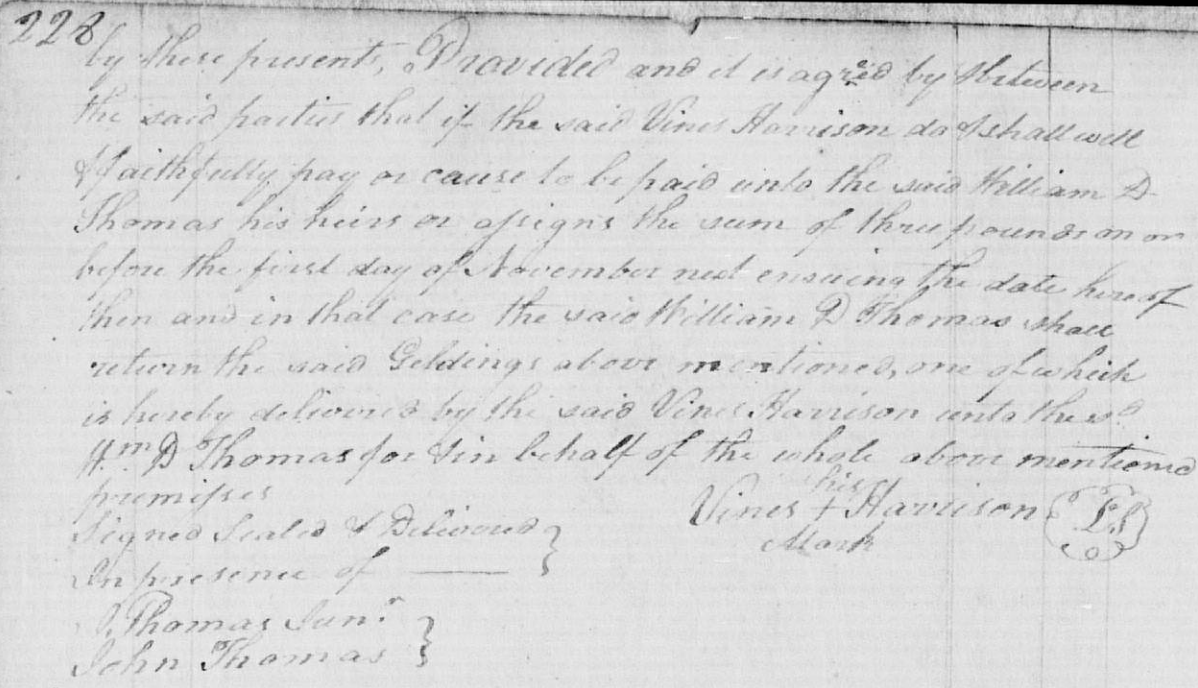 228
by these presents, Provided and it is agreed by & between
the said parties that if the said Vines Harrison do & shall well
& faithfully pay or cause to be paid unto the said William D
Thomas his heirs or assigns the sum of three pounds on or
before the first day of November next ensuing the date hereof
then and in that case the said William D Thomas shall
return the said Geldings above mentioned, one of which
is hereby delivered by the said Vines Harrison unto the sd.
Wm. D Thomas for & in behalf of the whole above mentioned
premisses
his
Vines + Harrison {L.S}
Mark
Signed Sealed & Delivered }
In presence of ——— }
J. Thomas Junr. }
John Thomas }